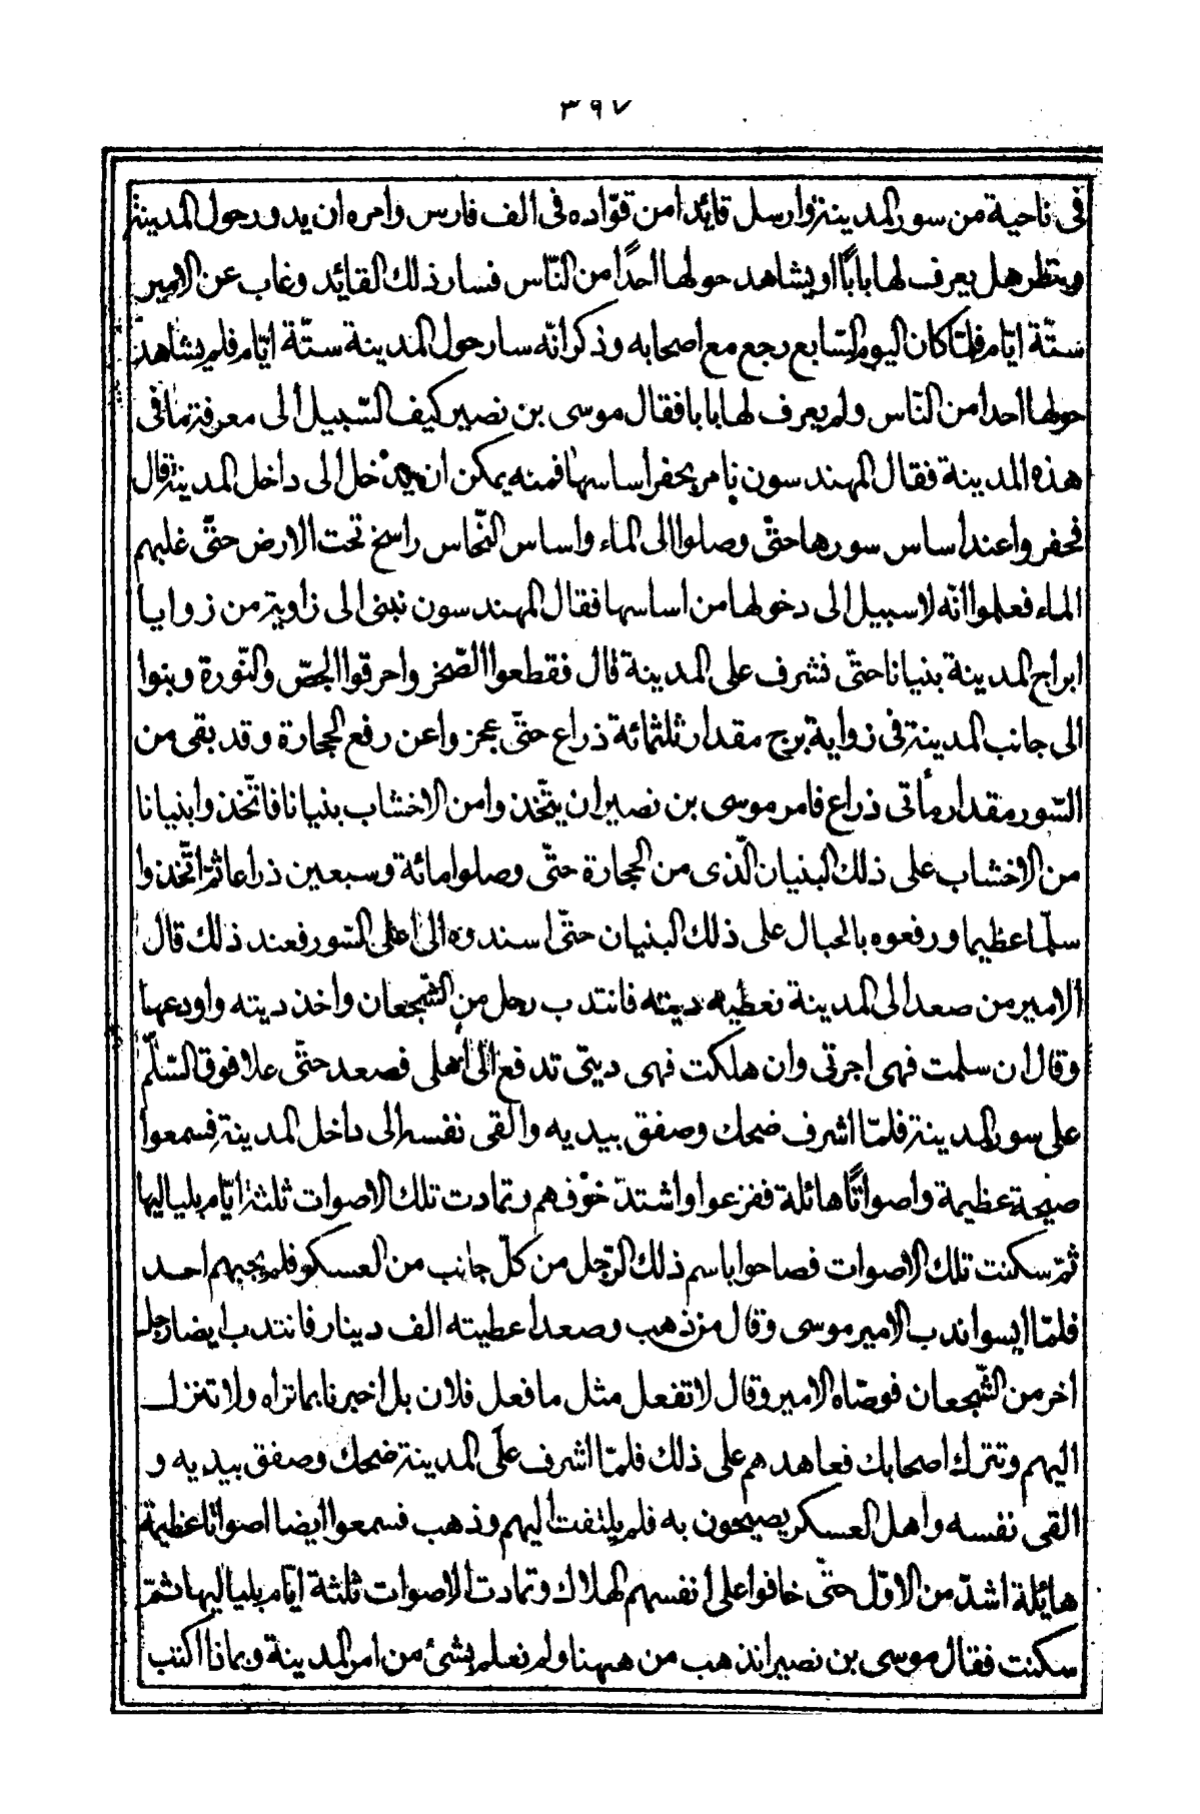 ٣٩٧
فى ناحية من سور المدينة وارسل قايدا من قوّاده فى الف فارس وامره ان يدور حول المدينة
وينظر هل يعرف لها بابًا او يشاهد حولها احدًا من النّاس فسار ذلك القايد وغاب عن الامير
ستّة ايّام فلمّا كان اليوم السّابع رجع مع اصحابه وذكر انّه سار حول المدينة ستّة ايّام فلم يشاهد
حولها احدا من النّاس ولم يعرف لها بابا فقال موسى بن نصير كيف السّبيل الى معرفة ما فى
هذه المدينة فقال المهندسون نامر بحفر اساسها فمنه يمكن ان يدخل الى داخل المدينة قال
فحفروا عند اساس سورها حتّى وصلوا الى الماء واساس النّحاس راسخ تحت الارض حتّى غلبهم
الماء فعلموا انّه لا سبيل الى دخولها من اساسها فقال المهندسون نبنى الى زاوية من زوايا
ابراج المدينة بنيانا حتّى نشرف على المدينة قال فقطعوا الصّخر واحرقوا الجصّ والنّورة وبنوا
الى جانب المدينة فى زواية برج مقدار ثلثمائة ذراع حتّى عجزوا عن رفع الحجارة وقد بقى من
السّور مقدار مأتى ذراع فامر موسى بن نصير ان يتّخذوا من الاخشاب بنيانا فاتّخذوا بنيانا
من الاخشاب على ذلك البنيان الّذى من الحجارة حتّى وصلوا مائة وسبعين ذراعا ثمّ اتّخذوا
سلّما عظيما ورفعوه بالحبال على ذلك البنيان حتّى اسندوه الى اعلى السّور فعند ذلك قال
الامير من صعد الى المدينة نعطيه ديته فانتدب رجل من الشّجعان واخذ ديته واودعها
وقال ان سلمت فهى اجرتى وان هلكت فهى ديتى تدفع الى اهلى فصعد حتّى علا فوق السّلّم
على سور المدينة فلمّا اشرف ضحك وصفق بيديه والقى نفسه الى داخل المدينة فسمعوا
صيحة عظيمة واصواتًا هائلة ففزعوا واشتدّ خوفهم وتمادت تلك الاصوات ثلثة ايّام بلياليها
ثمّ سكنت تلك الاصوات فصاحوا باسم ذلك الرّجل من كلّ جانب من العسكر فلم يجبهم احد
فلمّا ايسوا ندب الامير موسى وقال من ذهب وصعد اعطيته الف دينار فانتدب ايضا رجل
اخر من الشّجعان فوصّاه الامير وقال لا تفعل مثل ما فعل فلان بل اخبرنا بما تراه ولا تنزل
اليهم وتترك اصحابك فعاهدهم على ذلك فلمّا اشرف على المدينة ضحك وصفق بيديه و
القى نفسه واهل العسكر يصيحون به فلم يلتفت اليهم وذهب فسمعوا ايضا اصواتا عظيمة
هايلة اشدّ من الاوّل حتّى خافوا على انفسهم الهلاك وتمادت الاصوات ثلثة ايّام بلياليها ثمّ
سكنت فقال موسى بن نصير انذهب من ههنا ولم نعلم بشئ من امر المدينة وبماذا اكتب